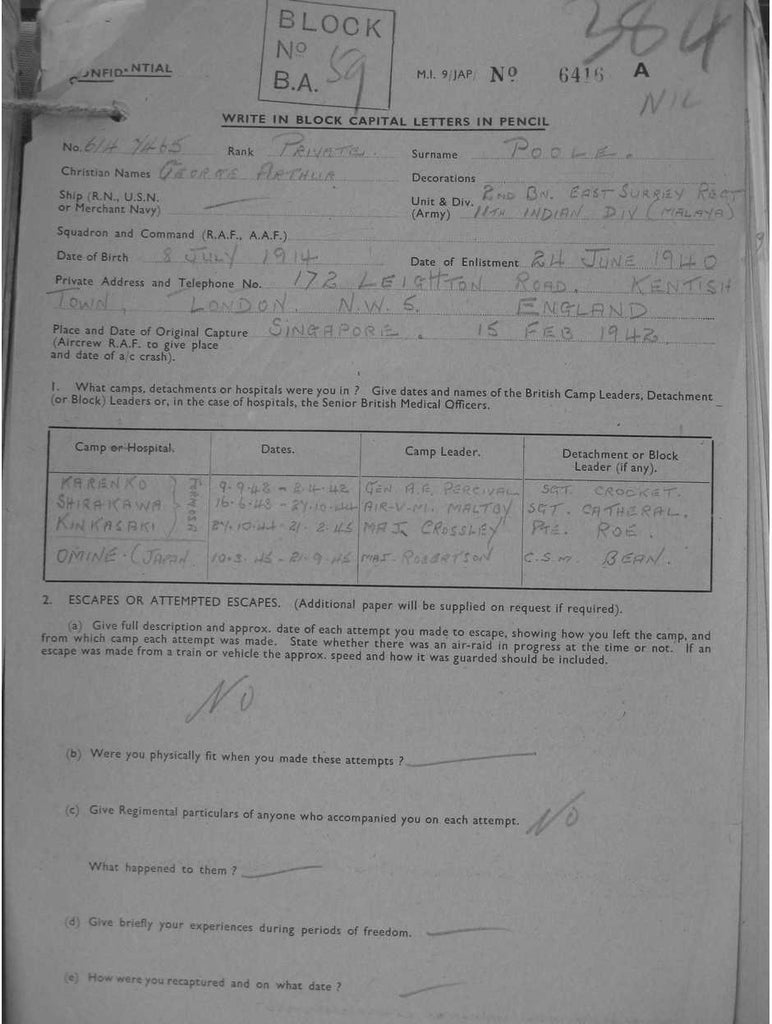 BLOCK
No
B.A. 59
384
CONFIDENTIAL
M.I. 9/JAP/ No 6416 A
NIL
WRITE IN BLOCK CAPITAL LETTERS IN PENCIL
No. 614 7465 Rank PRIVATE. Surname POOLE.
Christian Names GEORGE ARTHUR Decorations
Ship (R.N., U.S.N.
or Merchant Navy)
Unit & Div. 2ND BN. EAST SURREY REGT
(Army) 11TH INDIAN DIV (MALAYA)
Squadron and Command (R.A.F., A.A.F.)
Date of Birth 8 JULY 1914 Date of Enlistment 24 JUNE 1940
Private Address and Telephone No. 172 LEIGHTON ROAD. KENTISH
TOWN, LONDON. N.W. 5. ENGLAND
Place and Date of Original Capture SINGAPORE. 15 FEB 1942
(Aircrew R.A.F. to give place
and date of a/c crash).
1. What camps, detachments or hospitals were you in ? Give dates and names of the British Camp Leaders, Detachment
(or Block) Leaders or, in the case of hospitals, the Senior British Medical Officers.
Camp or Hospital. Dates. Camp Leader. Detachment or Block
Leader (if any).
KARENKO 9-9-42 - 2-4-42 GEN A.E. PERCIVAL SGT. CROCKET.
SHIRAKAWA 16-6-43 - 27-10-44 AIR-V-M. MALTBY SGT. CATHERAL.
KINKASAKI 27-10-44 - 21-2-45 MAJ CROSSLEY PTE. ROE.
FORMOSA
OMINE. (JAPAN 10-3-45 - 21-9-45 MAJ. ROBERTSON C.S.M. BEAN.
2. ESCAPES OR ATTEMPTED ESCAPES. (Additional paper will be supplied on request if required).
(a) Give full description and approx. date of each attempt you made to escape, showing how you left the camp, and
from which camp each attempt was made. State whether there was an air-raid in progress at the time or not. If an
escape was made from a train or vehicle the approx. speed and how it was guarded should be included.
NO
(b) Were you physically fit when you made these attempts ?
(c) Give Regimental particulars of anyone who accompanied you on each attempt. NO
What happened to them ?
(d) Give briefly your experiences during periods of freedom.
(e) How were you recaptured and on what date ?